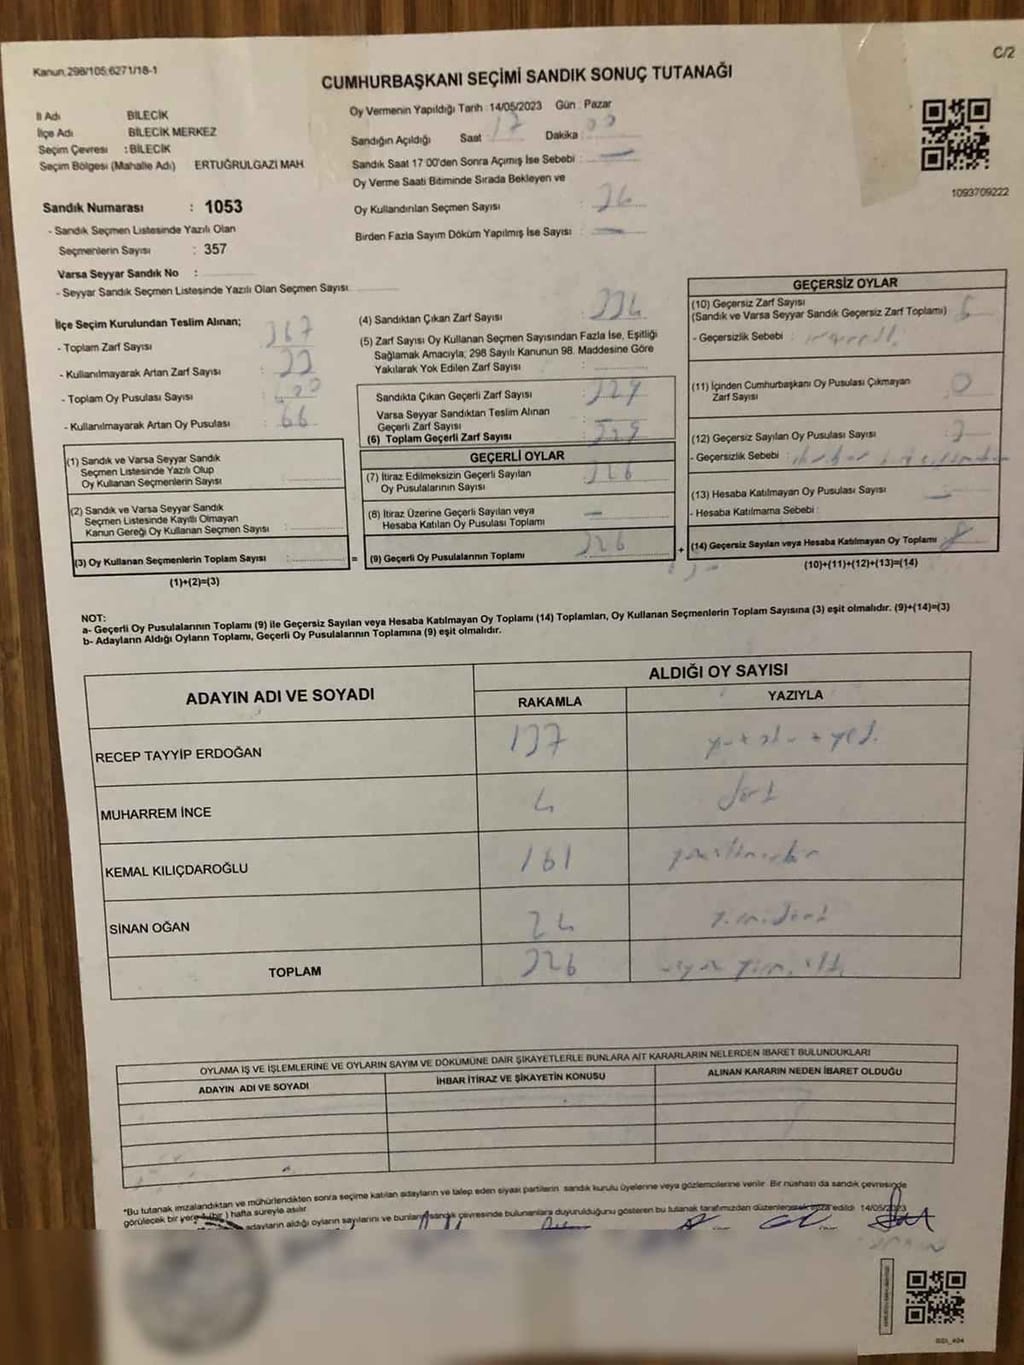 Kanun:298/105;6271/18-1
C/2
CUMHURBAŞKANI SEÇİMİ SANDIK SONUÇ TUTANAĞI
İl Adı BİLECİK
İlçe Adı BİLECİK MERKEZ
Seçim Çevresi : BİLECİK
Seçim Bölgesi (Mahalle Adı) ERTUĞRULGAZİ MAH.
Sandık Numarası : 1053
- Sandık Seçmen Listesinde Yazılı Olan
Seçmenlerin Sayısı : 357
Varsa Seyyar Sandık No :
- Seyyar Sandık Seçmen Listesinde Yazılı Olan Seçmen Sayısı
Oy Vermenin Yapıldığı Tarih :14/05/2023 Gün : Pazar
Sandığın Açıldığı Saat 17 Dakika 00
Sandık Saat 17:00'den Sonra Açımış İse Sebebi : —
Oy Verme Saati Bitiminde Sırada Bekleyen ve
Oy Kullandırılan Seçmen Sayısı :
Birden Fazla Sayım Döküm Yapılmış İse Sayısı : —
1093709222
İlçe Seçim Kurulundan Teslim Alınan;
- Toplam Zarf Sayısı : 367
- Kullanılmayarak Artan Zarf Sayısı :
- Toplam Oy Pusulası Sayısı :
- Kullanılmayarak Artan Oy Pusulası : 66
(1) Sandık ve Varsa Seyyar Sandık
Seçmen Listesinde Yazılı Olup
Oy Kullanan Seçmenlerin Sayısı :
(2) Sandık ve Varsa Seyyar Sandık
Seçmen Listesinde Kayıtlı Olmayan
Kanun Gereği Oy Kullanan Seçmen Sayısı :
(3) Oy Kullanan Seçmenlerin Toplam Sayısı :
(1)+(2)=(3)
(4) Sandıktan Çıkan Zarf Sayısı : 234
(5) Zarf Sayısı Oy Kullanan Seçmen Sayısından Fazla İse, Eşitliği
Sağlamak Amacıyla; 298 Sayılı Kanunun 98. Maddesine Göre
Yakılarak Yok Edilen Zarf Sayısı :
Sandıkta Çıkan Geçerli Zarf Sayısı : 229
Varsa Seyyar Sandıktan Teslim Alınan
Geçerli Zarf Sayısı :
(6) Toplam Geçerli Zarf Sayısı : 229
GEÇERLİ OYLAR
(7) İtiraz Edilmeksizin Geçerli Sayılan
Oy Pusulalarının Sayısı : 226
(8) İtiraz Üzerine Geçerli Sayılan veya
Hesaba Katılan Oy Pusulası Toplamı : —
= (9) Geçerli Oy Pusulalarının Toplamı : 226
GEÇERSİZ OYLAR
(10) Geçersiz Zarf Sayısı
(Sandık ve Varsa Seyyar Sandık Geçersiz Zarf Toplamı) :
- Geçersizlik Sebebi :
(11) İçinden Cumhurbaşkanı Oy Pusulası Çıkmayan
Zarf Sayısı : 0
(12) Geçersiz Sayılan Oy Pusulası Sayısı :
- Geçersizlik Sebebi :
(13) Hesaba Katılmayan Oy Pusulası Sayısı : —
- Hesaba Katılmama Sebebi :
+ (14) Geçersiz Sayılan veya Hesaba Katılmayan Oy Toplamı : 8
(10)+(11)+(12)+(13)=(14)
NOT:
a- Geçerli Oy Pusulalarının Toplamı (9) ile Geçersiz Sayılan veya Hesaba Katılmayan Oy Toplamı (14) Toplamları, Oy Kullanan Seçmenlerin Toplam Sayısına (3) eşit olmalıdır. (9)+(14)=(3)
b- Adayların Aldığı Oyların Toplamı, Geçerli Oy Pusulalarının Toplamına (9) eşit olmalıdır.
ADAYIN ADI VE SOYADI
ALDIĞI OY SAYISI
RAKAMLA YAZIYLA
RECEP TAYYİP ERDOĞAN 137
MUHARREM İNCE 4 dört
KEMAL KILIÇDAROĞLU 161 yüzaltmışbir
SİNAN OĞAN 24 yirmidört
TOPLAM 226 ikiyüz yirmi altı
OYLAMA İŞ VE İŞLEMLERİNE VE OYLARIN SAYIM VE DÖKÜMÜNE DAİR ŞİKAYETLERLE BUNLARA AİT KARARLARIN NELERDEN İBARET BULUNDUKLARI
ADAYIN ADI VE SOYADI İHBAR İTİRAZ VE ŞİKAYETİN KONUSU ALINAN KARARIN NEDEN İBARET OLDUĞU
*Bu tutanak imzalandıktan ve mühürlendikten sonra seçime katılan adayların ve talep eden siyasi partilerin sandık kurulu üyelerine veya gözlemcilerine verilir. Bir nüshası da sandık çevresinde
görülecek bir yere 1 (bir) hafta süreyle asılır.
adayların aldığı oyların sayılarını ve bunların sandık çevresinde bulunanlara duyurulduğunu gösteren bu tutanak tarafımızdan düzenlenerek imza edildi 14/05/2023